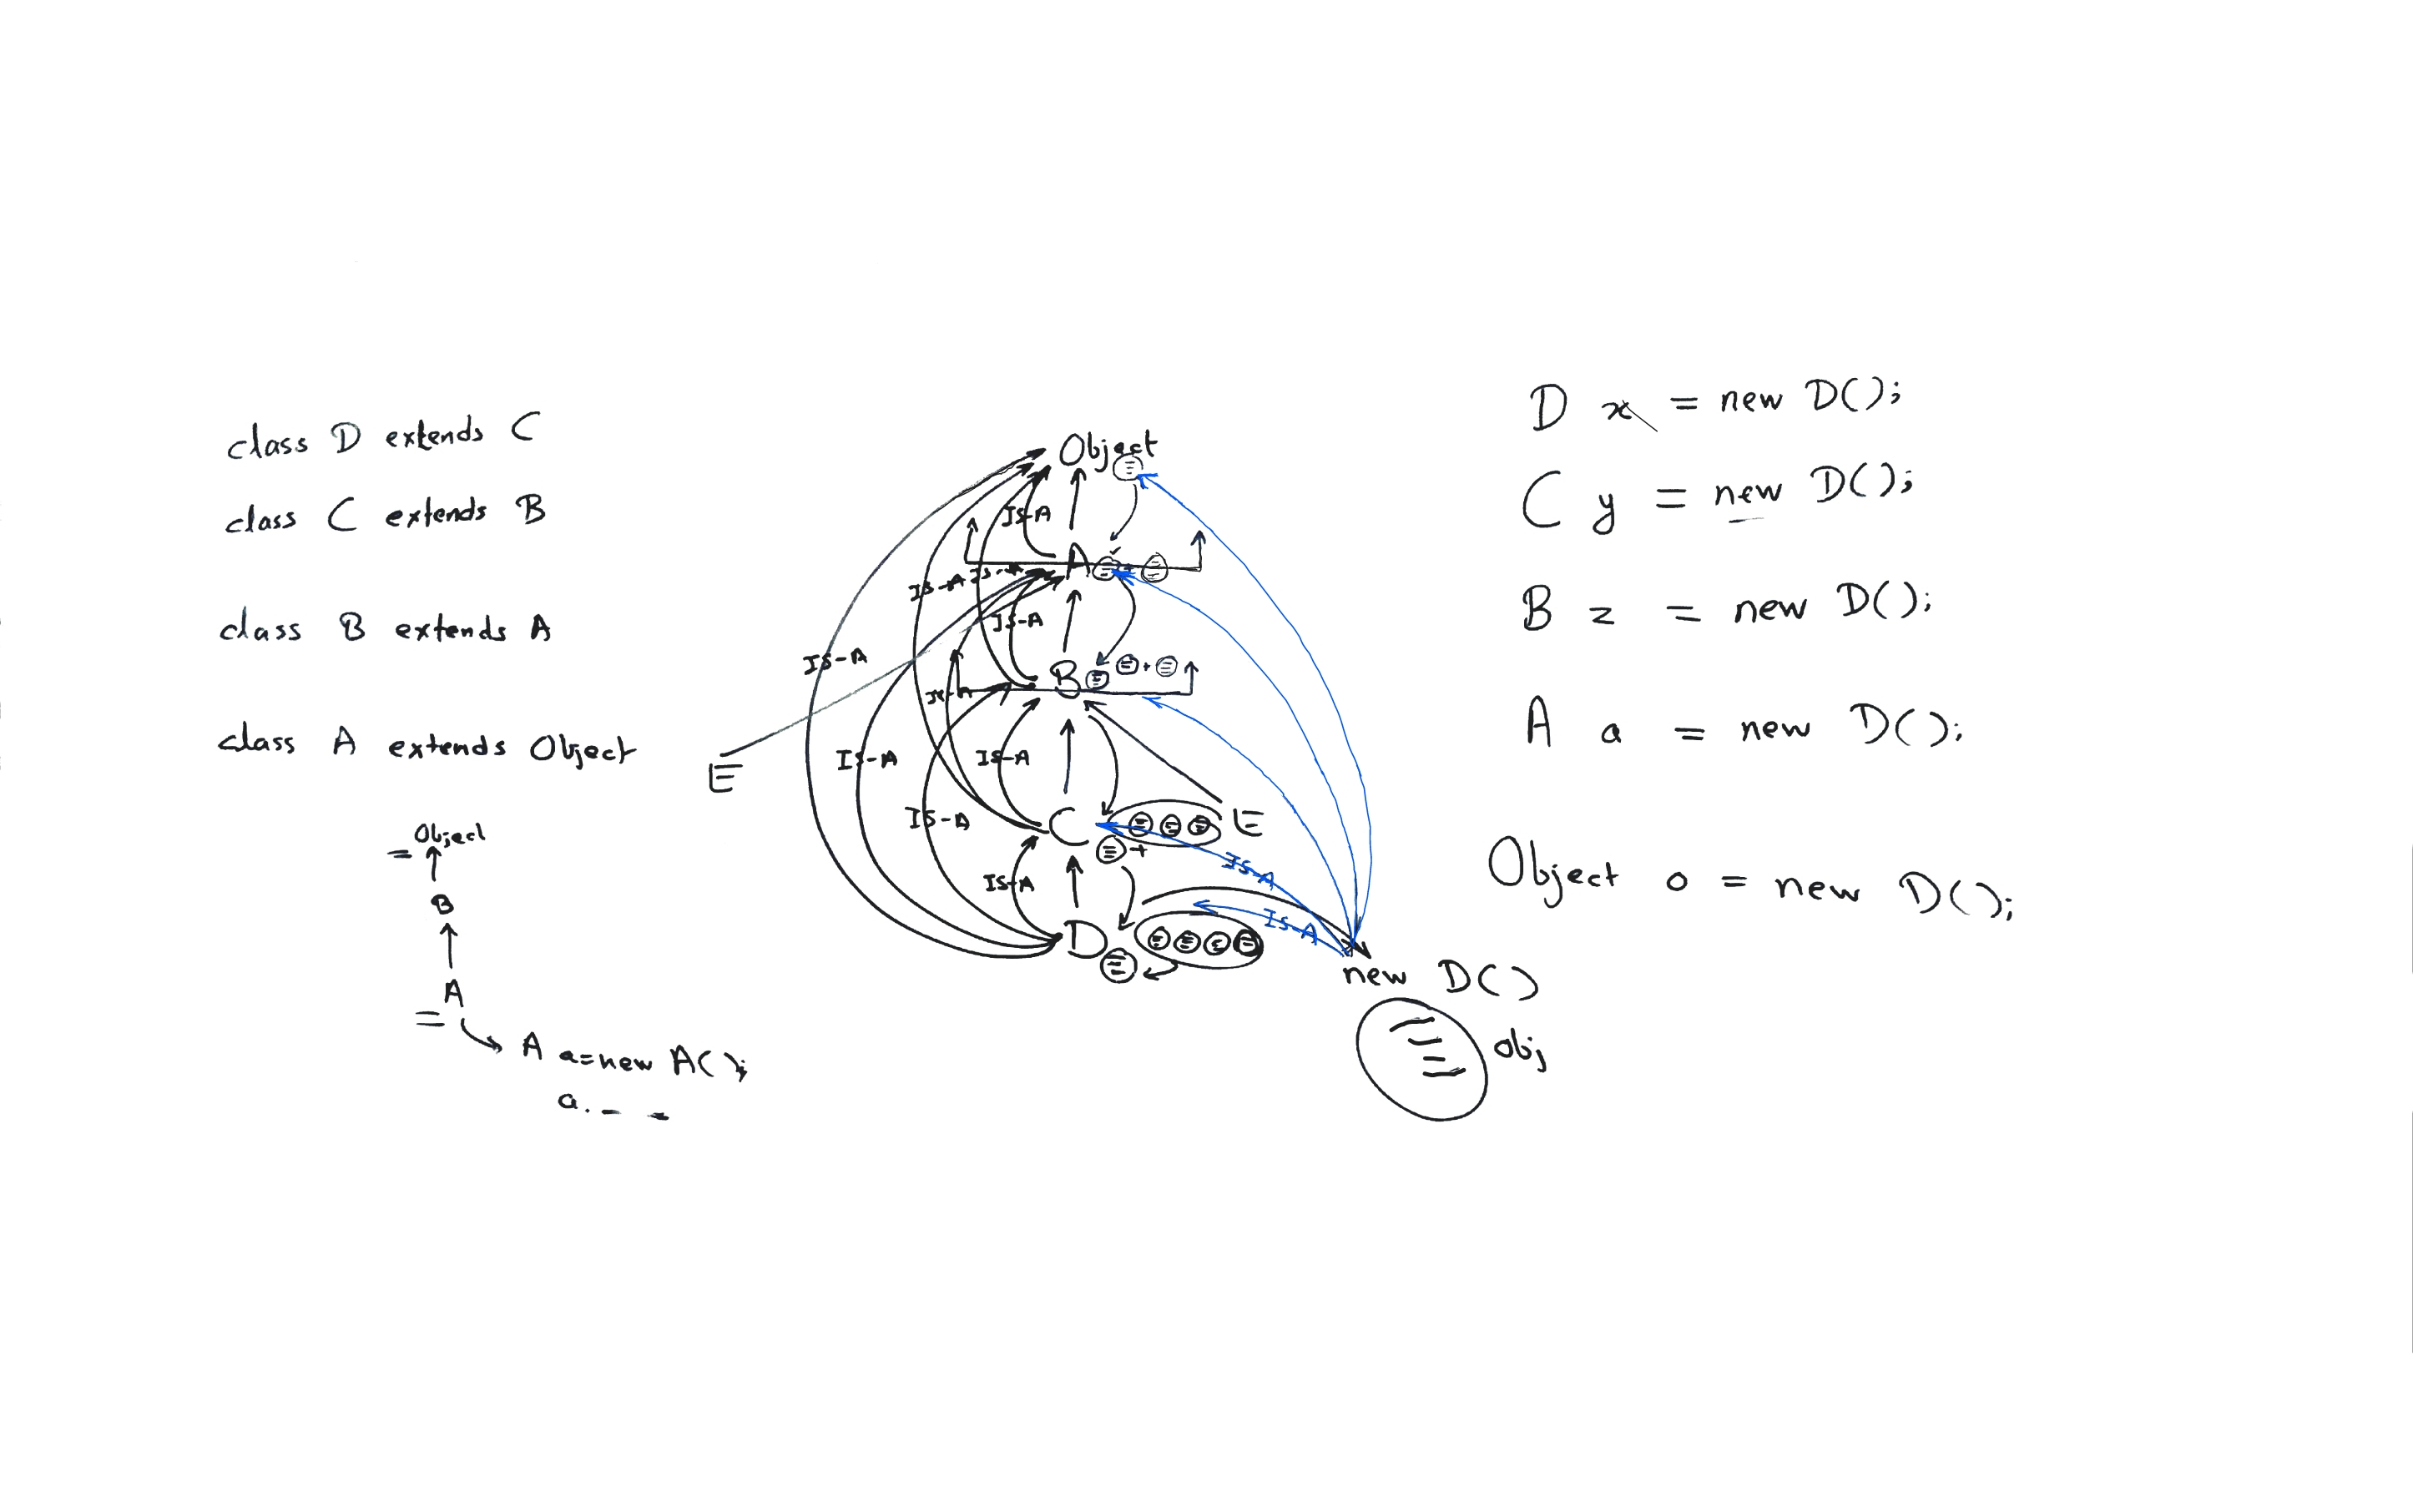 class D extends C
class C extends B
class B extends A
class A extends Object
Object
B
A
A a=new A();
a.
Object
IS-A
A
IS-A IS-A
IS-A
IS-A
B
IS-A
IS-A
IS-A
E
IS-A
C
E
IS-A
IS-A
D
IS-A
new D()
obj
D x = new D();
C y = new D();
B z = new D();
A a = new D();
Object o = new D();